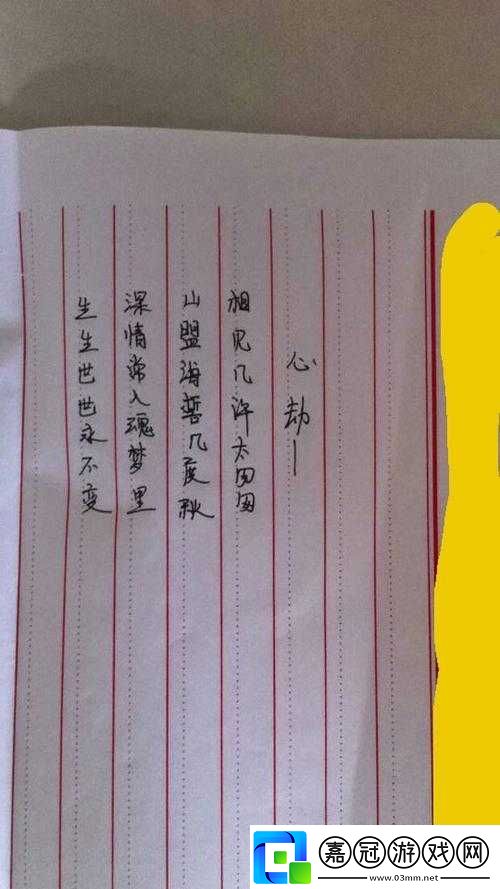 心劫一
相见几许太匆匆
山盟海誓几度秋
深情常入魂梦里
生生世世永不变
嘉冠游戏网
www.03mm.net